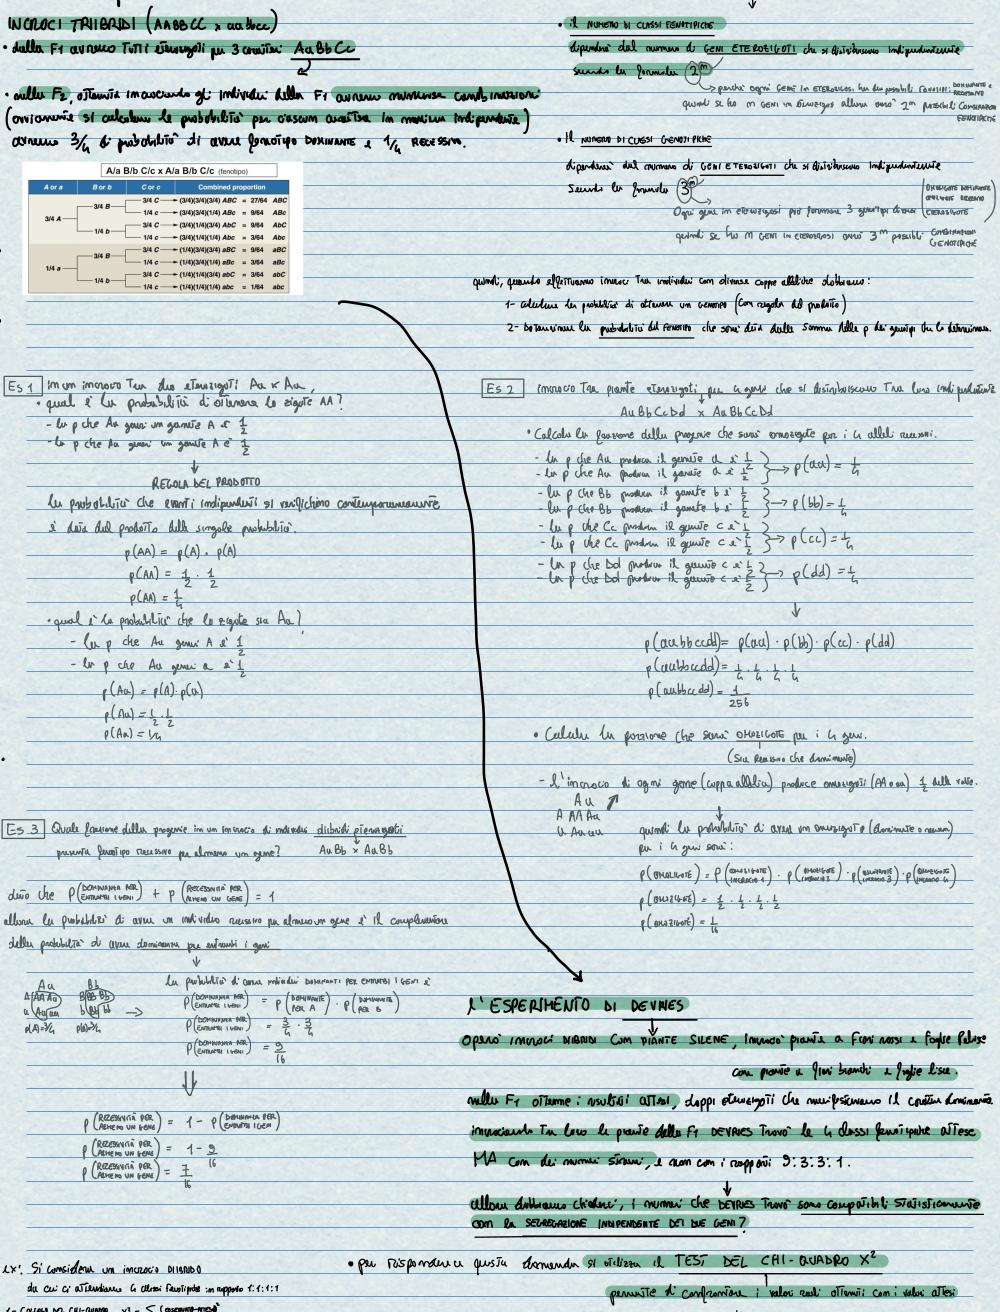 INCROCI TRIIBRIDI (AABBCC x aabbcc)
• della F1 avremo TUTTI eterozigoti per 3 caratteri AaBbCc
• nella F2, ottenuta incrociando gli individui della F1 avremo numerose combinazioni
(ovviamente si calcolano le probabilità per ciascun carattere in maniera indipendente)
avremo 3/4 di probabilità di avere fenotipo DOMINANTE e 1/4 RECESSIVO.
A/a B/b C/c x A/a B/b C/c (fenotipo)
A or a B or b C or c Combined proportion
3/4 A 3/4 B 3/4 C (3/4)(3/4)(3/4) ABC = 27/64 ABC
1/4 c (3/4)(3/4)(1/4) ABc = 9/64 ABc
1/4 b 3/4 C (3/4)(1/4)(3/4) AbC = 9/64 AbC
1/4 c (3/4)(1/4)(1/4) Abc = 3/64 Abc
1/4 a 3/4 B 3/4 C (1/4)(3/4)(3/4) aBC = 9/64 aBC
1/4 c (1/4)(3/4)(1/4) aBc = 3/64 aBc
1/4 b 3/4 C (1/4)(1/4)(3/4) abC = 3/64 abC
1/4 c (1/4)(1/4)(1/4) abc = 1/64 abc
• il NUMERO DI CLASSI FENOTIPICHE
dipenderà dal numero di GENI ETEROZIGOTI che si distribuiscono indipendentemente
secondo la formula 2^n
perché ogni GENE in ETEROZIGOSI ha due possibili FENOTIPI: DOMINANTE e RECESSIVO
quindi se ho n GENI in eterozigosi allora avrò 2^n possibili COMBINAZIONI FENOTIPICHE
• Il NUMERO DI CLASSI GENOTIPICHE
dipenderà dal numero di GENI ETEROZIGOTI che si distribuiscono indipendentemente
Secondo la formula 3^n
Ogni gene in eterozigosi può formare 3 genotipi diversi (OMOZIGOTE DOMINANTE OMOZIGOTE RECESSIVO ETEROZIGOTE)
quindi se ho n GENI IN ETEROZIGOSI avrò 3^n possibili COMBINAZIONI GENOTIPICHE
quindi, quando effettuiamo incroci tra individui con diverse coppie alleliche dobbiamo:
1- calcolare la probabilità di ottenere un GENOTIPO (con regola del prodotto)
2- Determinare la probabilità del FENOTIPO che sarà data dalla somma delle p dei genotipi che lo determinano.
Es 1 in un incrocio Tra due eterozigoti Aa x Aa,
• qual è la probabilità di ottenere lo zigote AA?
- la p che Aa generi un gamete A è 1/2
- la p che Aa generi un gamete A è 1/2
↓
REGOLA DEL PRODOTTO
la probabilità che eventi indipendenti si verifichino contemporaneamente
è data dal prodotto delle singole probabilità.
p(AA) = p(A) · p(A)
p(AA) = 1/2 · 1/2
p(AA) = 1/4
• qual è la probabilità che lo zigote sia Aa?
- la p che Aa generi A è 1/2
- la p che Aa generi a è 1/2
p(Aa) = p(A)·p(a)
p(Aa) = 1/2 · 1/2
p(Aa) = 1/4
Es 2 incrocio Tra piante eterozigoti per 4 geni che si distribuiscono Tra loro indipendente
AaBbCcDd x AaBbCcDd
• Calcola la frazione della progenie che sarà omozigote per i 4 alleli recessivi.
- la p che Aa produca il gamete a è 1/2
- la p che Aa produca il gamete a è 1/2 → p(aa) = 1/4
- la p che Bb produca il gamete b è 1/2
- la p che Bb produca il gamete b è 1/2 → p(bb) = 1/4
- la p che Cc produca il gamete c è 1/2
- la p che Cc produca il gamete c è 1/2 → p(cc) = 1/4
- la p che Dd produca il gamete c è 1/2
- la p che Dd produca il gamete c è 1/2 → p(dd) = 1/4
↓
p(aabbccdd) = p(aa) · p(bb) · p(cc) · p(dd)
p(aabbccdd) = 1/4 · 1/4 · 1/4 · 1/4
p(aabbccdd) = 1/256
• Calcola la porzione che sarà OMOZIGOTE per i 4 geni.
(sia Recessivo che dominante)
- l'incrocio di ogni gene (coppia allelica) produce omozigoti (AA o aa) 1/2 delle volte.
A a
A AA Aa
a Aa aa
quindi la probabilità di avere un omozigote (dominante o recessivo)
per i 4 geni sarà:
p(OMOZIGOTE) = p(OMOZIGOTE INCROCIO 1) · p(OMOZIGOTE INCROCIO 2) · p(OMOZIGOTE INCROCIO 3) · p(OMOZIGOTE INCROCIO 4)
p(OMOZIGOTE) = 1/2 · 1/2 · 1/2 · 1/2
p(OMOZIGOTE) = 1/16
Es 3 Quale frazione della progenie in un incrocio di individui diibridi eterozigoti
AaBb x AaBb
presenta fenotipo recessivo per almeno un gene?
dato che p(DOMINANZA PER ENTRAMBI I GENI) + p(RECESSIVITÀ PER ALMENO UN GENE) = 1
allora la probabilità di avere un individuo recessivo per almeno un gene è il complementare
della probabilità di avere dominanza per entrambi i geni
↓
Aa Bb
A AA Aa B BB Bb
a Aa aa b Bb bb
p(A)=3/4 p(B)=3/4
la probabilità di avere individui DOMINANTI PER ENTRAMBI I GENI è
p(DOMINANZA PER ENTRAMBI I GENI) = p(DOMINANTE PER A) · p(DOMINANTE PER B)
p(DOMINANZA PER ENTRAMBI I GENI) = 3/4 · 3/4
p(DOMINANZA PER ENTRAMBI I GENI) = 9/16
p(RECESSIVITÀ PER ALMENO UN GENE) = 1 - p(DOMINANZA PER ENTRAMBI I GENI)
p(RECESSIVITÀ PER ALMENO UN GENE) = 1 - 9/16
p(RECESSIVITÀ PER ALMENO UN GENE) = 7/16
L'ESPERIMENTO DI DEVRIES
Operò INCROCI DIIBRIDI CON PIANTE SILENE, incrociò piante a Fiori rossi e Foglie Pelose
con piante a fiori bianchi e foglie lisce.
nella F1 ottenne i risultati attesi, doppi eterozigoti che manifestavano il carattere dominante
incrociando Tra loro le piante della F1 DEVRIES Trovò le 4 classi fenotipiche attese
MA con dei numeri strani, e non con i rapporti 9:3:3:1.
allora dobbiamo chiederci, i numeri che DEVRIES Trovò sono compatibili statisticamente
con la SEGREGAZIONE INDIPENDENTE DEI DUE GENI?
• per rispondere a questa domanda si utilizza il TEST DEL CHI-QUADRO X²
permette di confrontare i valori reali ottenuti con i valori attesi
ex: Si considera un incrocio DIIBRIDO
da cui ci attendiamo 4 classi fenotipiche in rapporto 1:1:1:1